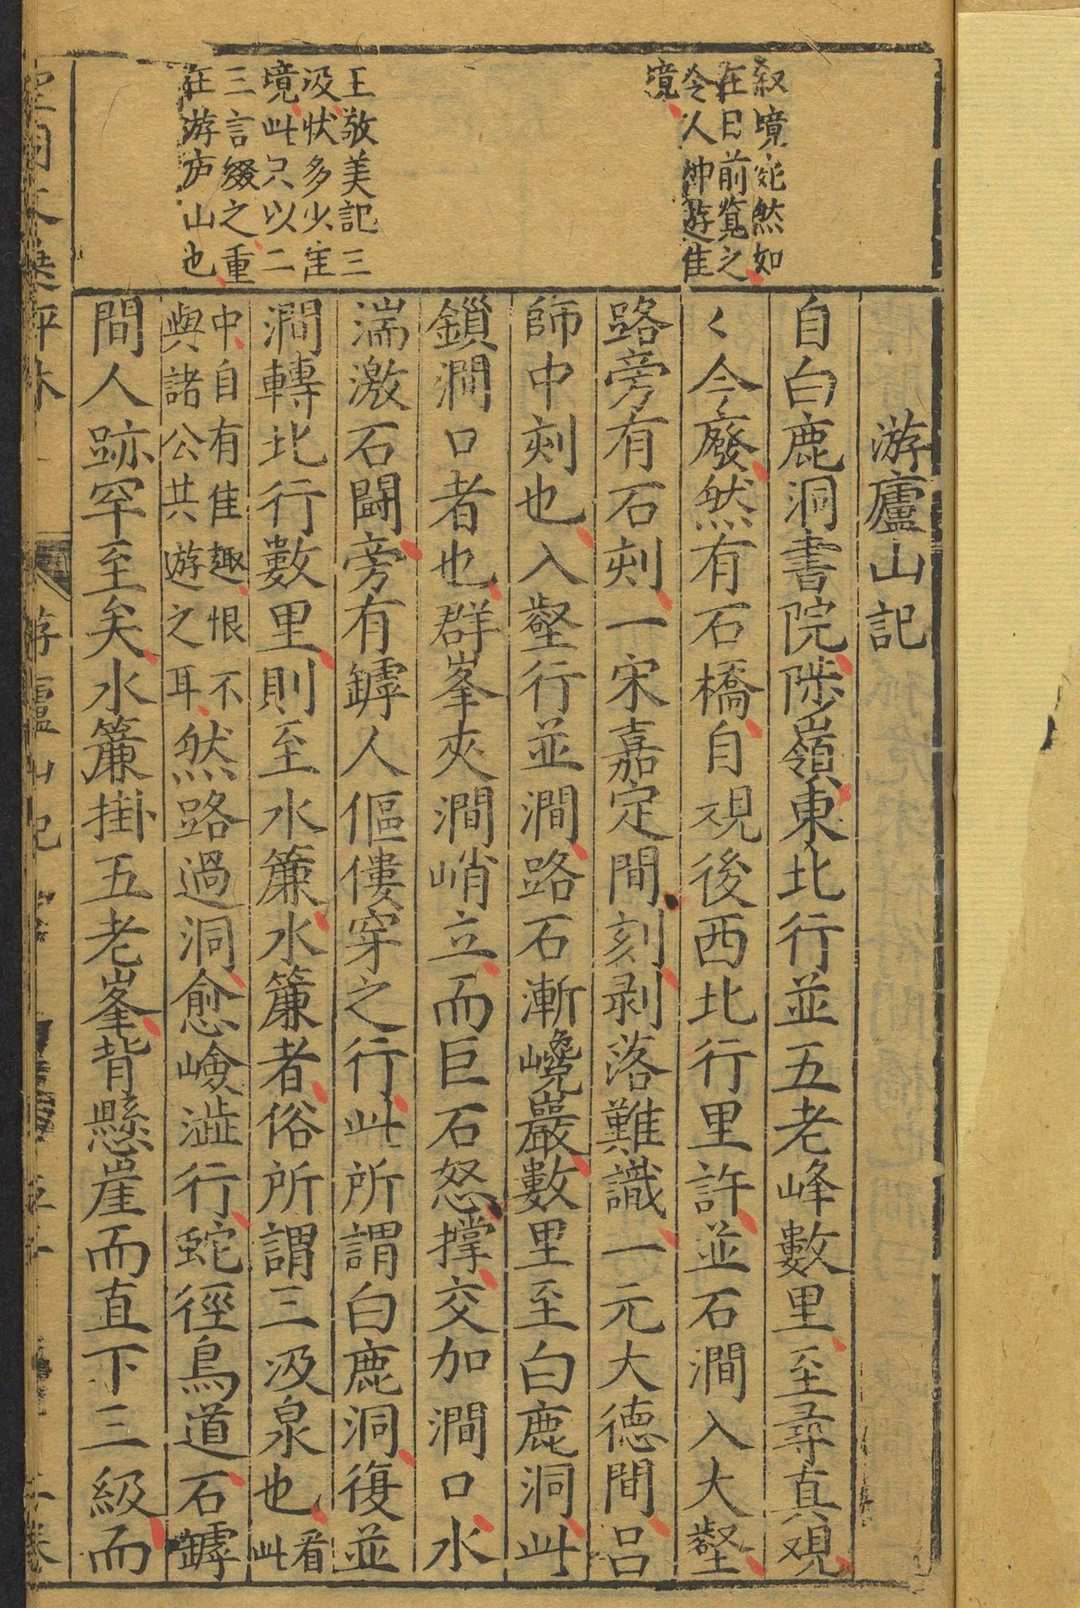 游廬山記
叙境宛然如
在目前覽之
令人神遊佳
境
自白鹿洞書院陟嶺東北行並五老峰數里至尋真觀
〻今廢然有石橋自觀後西北行里許並石澗入大壑
路旁有石刻一宋嘉定間刻剥落難識一元大德間吕
師中刻也入壑行並澗路石漸嶢巖數里至白鹿洞此
鎖澗口者也群峯夾澗峭立而巨石怒撑交加澗口水
王敬美記三
汲狀多少佳
境此只以二
三言綴之重
在游庐山也
湍激石鬪旁有罅人傴僂穿之行此所謂白鹿洞復並
澗轉北行數里則至水簾水簾者俗所謂三汲泉也看此
中自有佳趣恨不
與諸公共遊之耳然路過洞愈嶮澁行蛇徑鳥道石罅
間人跡罕至矣水簾掛五老峯背懸崖而直下三級而
游廬山記